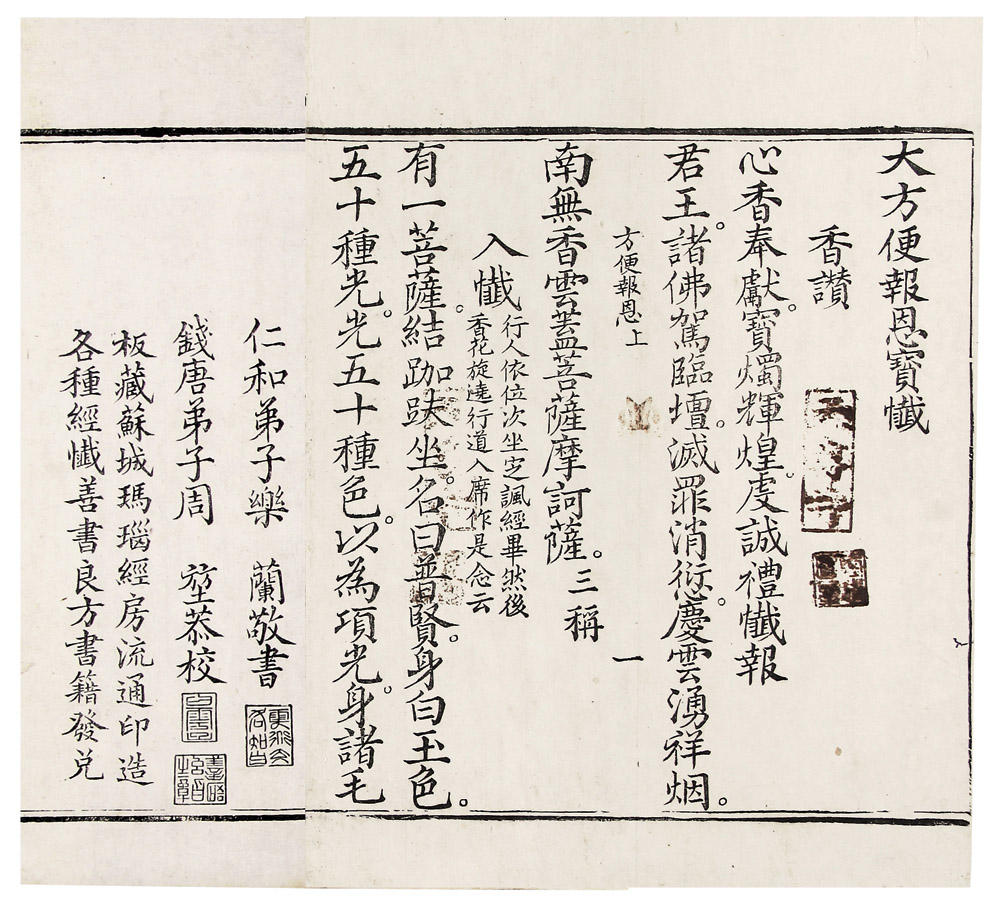 大方便報恩寶懺
香讚
心香奉獻。寶燭輝煌。虔誠禮懺報
君王。諸佛駕臨壇。滅罪消愆。慶雲湧祥烟。
方便報恩上
一
南無香雲蓋菩薩摩訶薩。三稱
入懺
行人依位次坐定諷經畢然後
香花旋遶行道入席作是念云
有一菩薩。結跏趺坐。名曰普賢。身白玉色。
五十種光。光五十種色。以為項光。身諸毛
仁和弟子樂 蘭敬書
錢唐弟子周 堃恭校
板藏蘇城瑪瑙經房流通印造
各種經懺善書良方書籍發兌